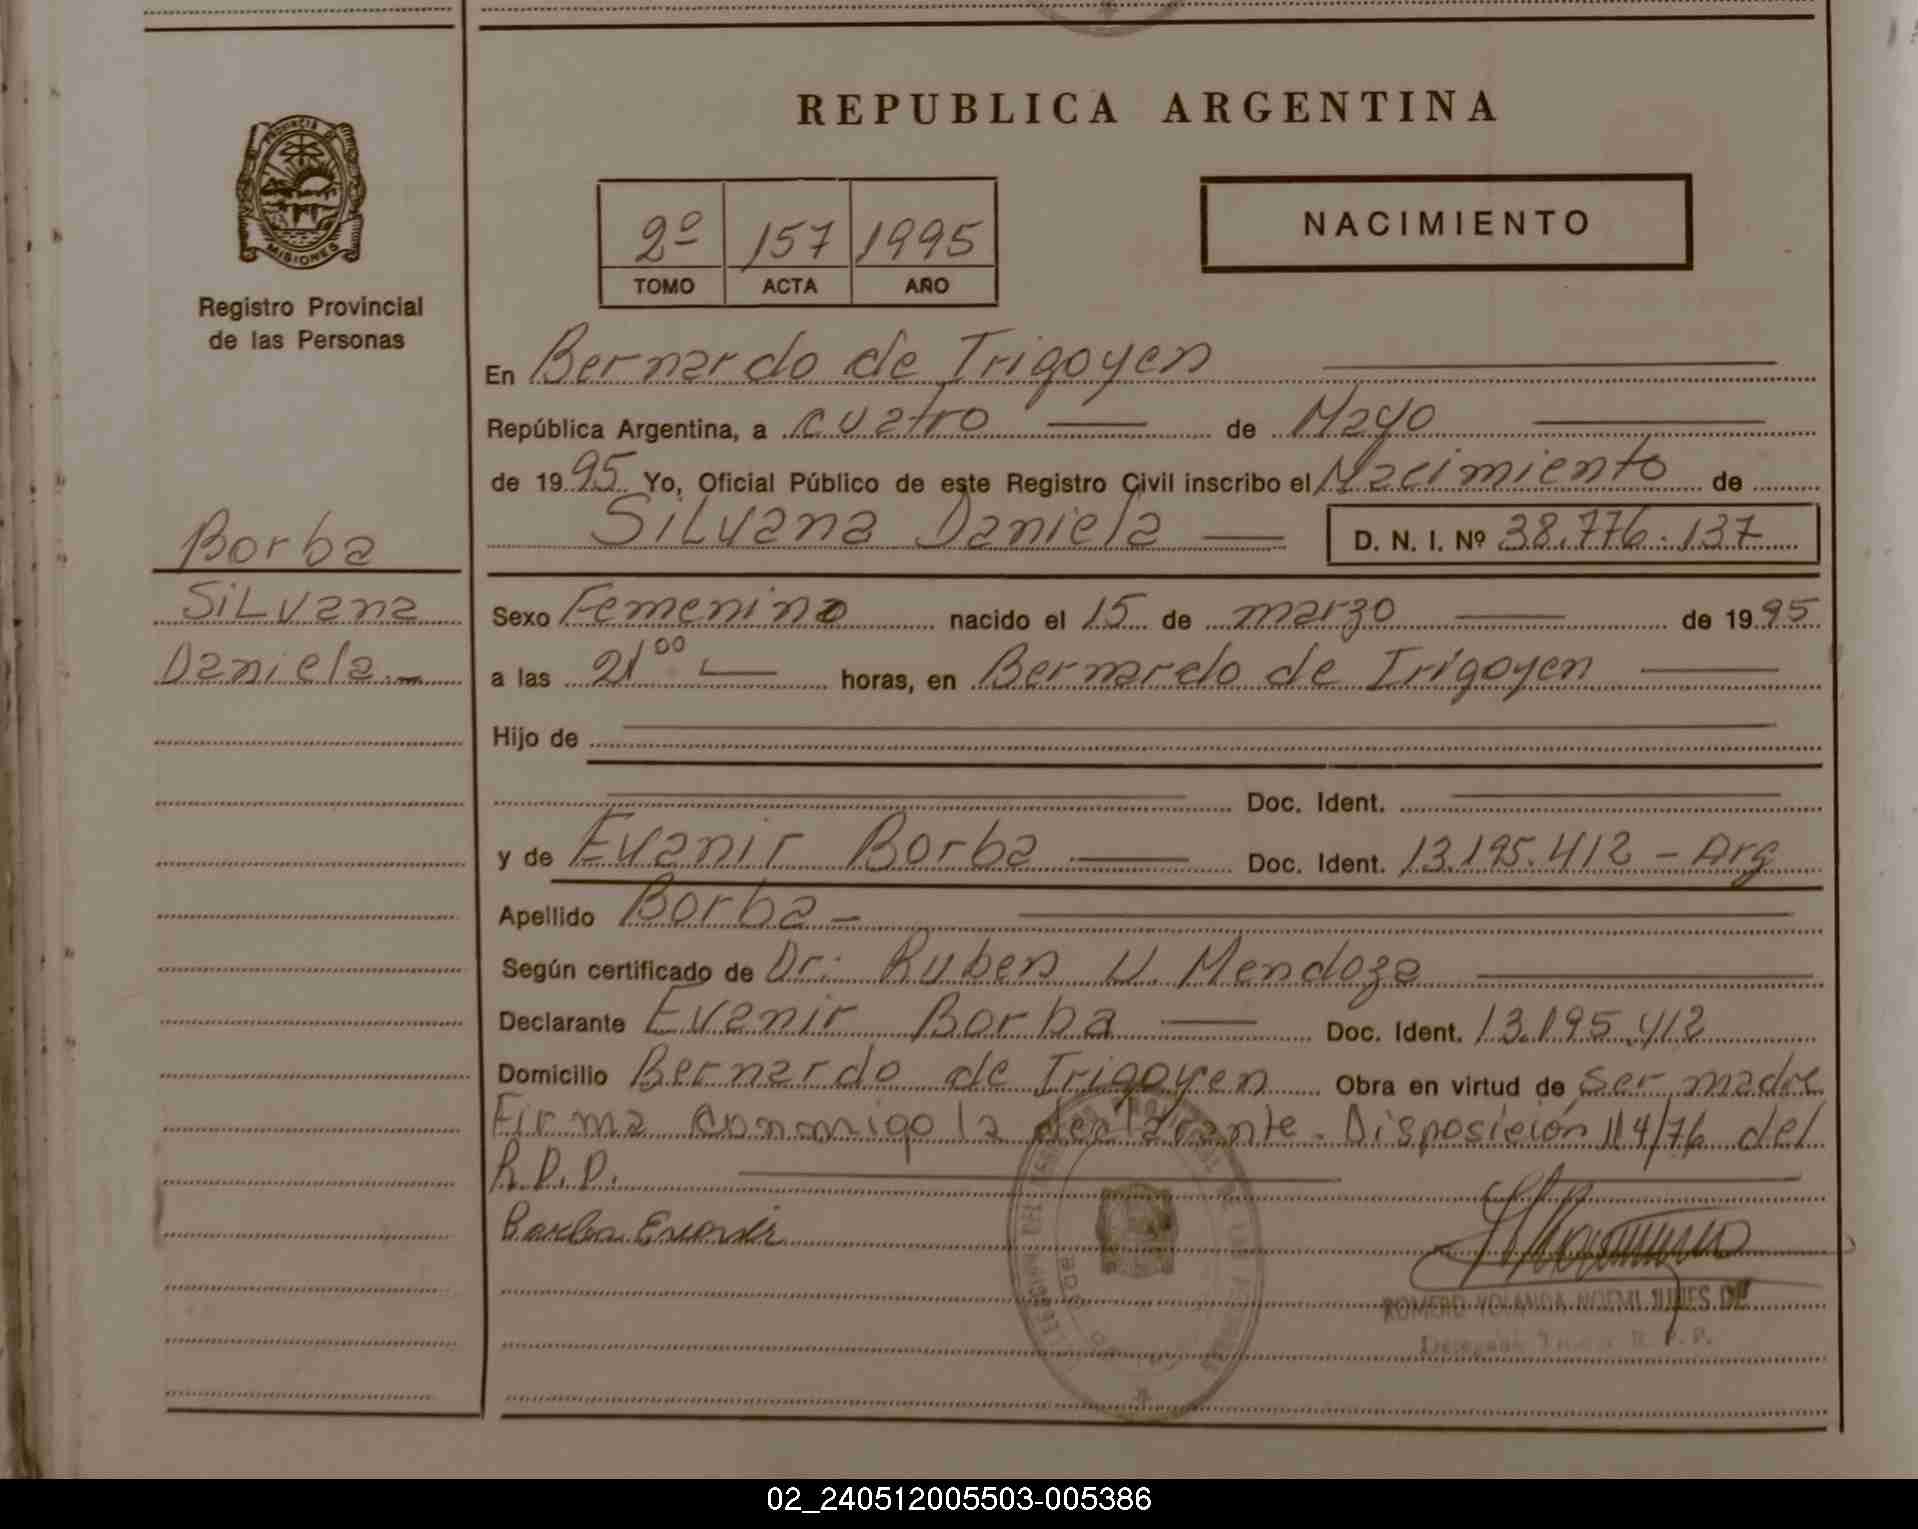 REPUBLICA ARGENTINA
PROVINCIA DE
MISIONES
Registro Provincial
de las Personas
2º 157 1995
TOMO ACTA AÑO
NACIMIENTO
En Bernardo de Irigoyen
República Argentina, a cuatro de Mayo
de 1995 Yo, Oficial Público de este Registro Civil inscribo el Nacimiento de
Silvana Daniela D. N. I. Nº 38.776.137
Borba
Silvana
Daniela.-
Sexo Femenino nacido el 15 de marzo de 1995
a las 21⁰⁰ horas, en Bernardo de Irigoyen
Hijo de
Doc. Ident.
y de Evanir Borba Doc. Ident. 13.195.412 - Arg
Apellido Borba -
Según certificado de Dr. Ruben U. Mendoza
Declarante Evanir Borba Doc. Ident. 13.195.412
Domicilio Bernardo de Irigoyen Obra en virtud de ser madre
Firma conmigo la declarante. Disposición 114/76 del
R.P.P.
Borba Evanir
ROMERO YOLANDA NOEMI
R. P. P.
02_240512005503-005386